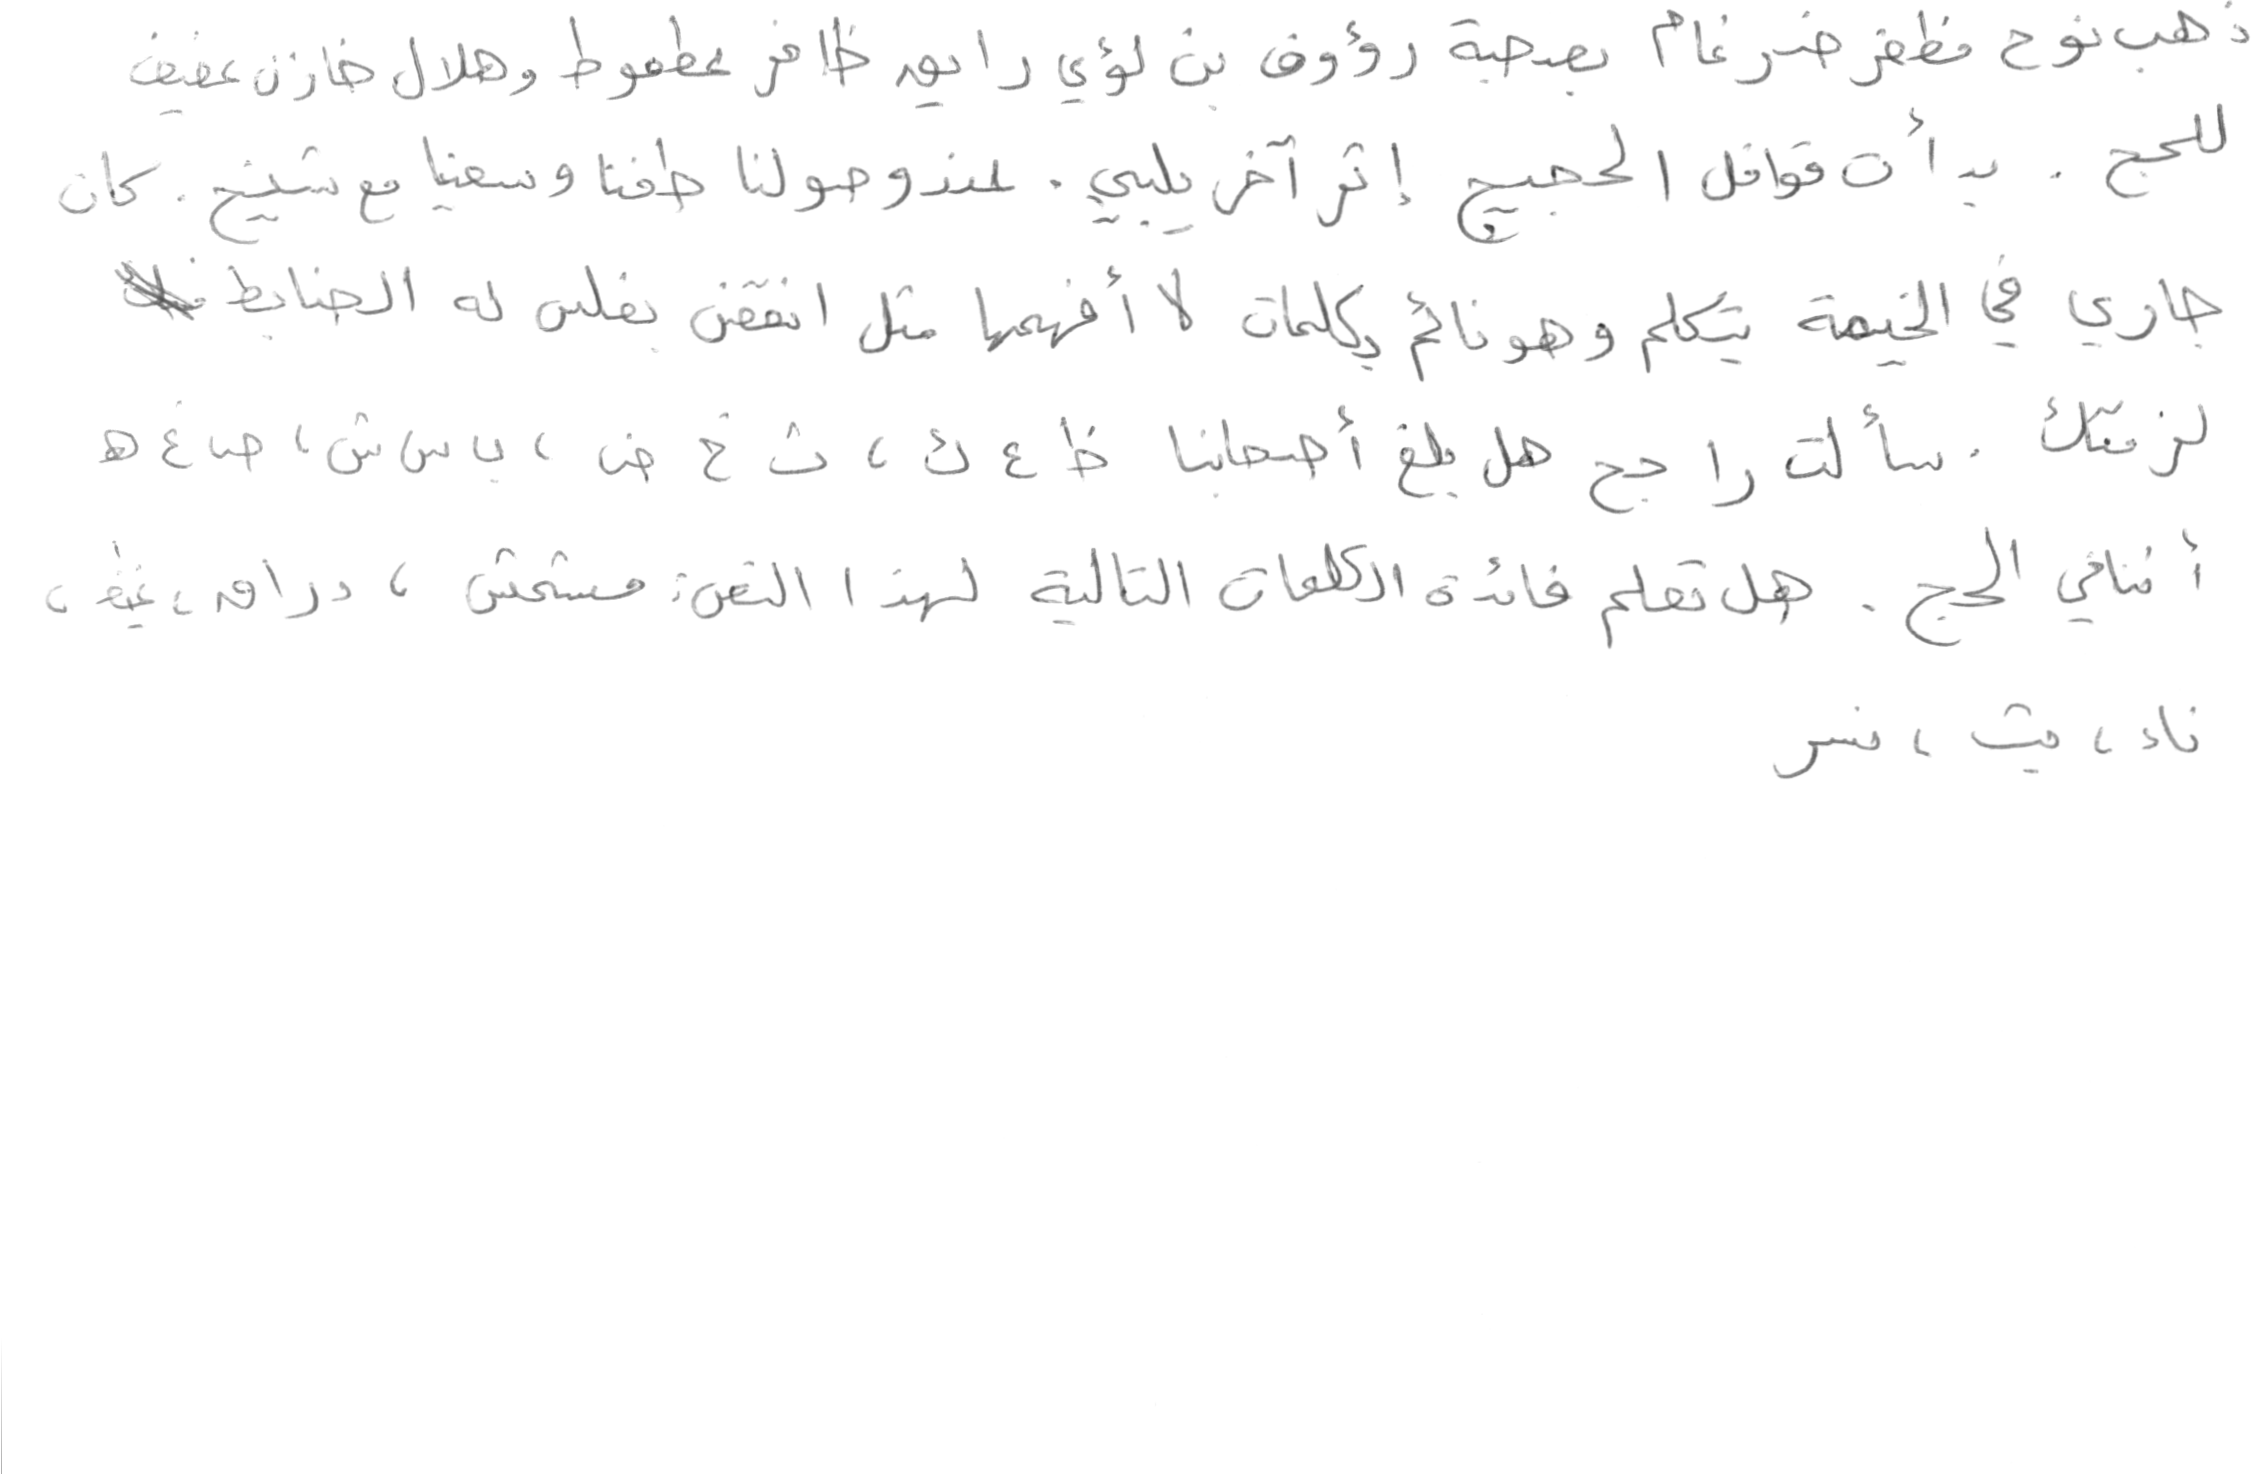 ذهب نوح مظفر ضرغام بصحبة رؤوف بن لؤي رايق ظافر عطعوط وهلال خازن عفيف
للحج . بدأت قوافل الحجيج إثر آخر يلبي . عند وصولنا طفنا وسعينا مع شيخ . كان
جاري في الخيمة يتكلم وهو نائم بكلمات لا أفهمها مثل انفقض بغلس له الضابط
لزمتك . سألت راجح هل بلغ أصحابنا ظ ع ك ، ث خ ض ، ب س ش ، ص غ ه
أثنافي الحج . هل تعلم فائدة الكلمات التالية لهذا النص : مستحش ، دراق ، غيظ ،
ناء ، ميث ، نسر